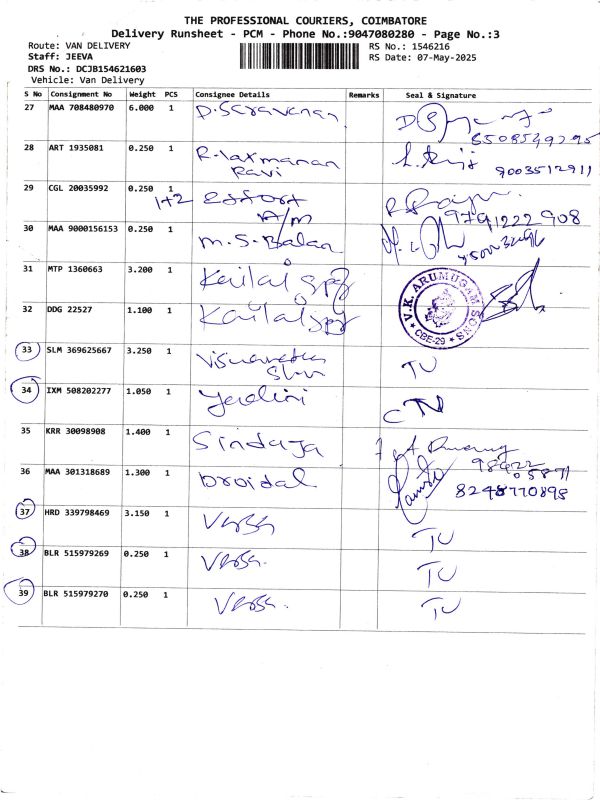 THE PROFESSIONAL COURIERS, COIMBATORE
Delivery Runsheet - PCM - Phone No.:9047080280 - Page No.:3
Route: VAN DELIVERY RS No.: 1546216
Staff: JEEVA RS Date: 07-May-2025
DRS No.: DCJB154621603
Vehicle: Van Delivery
S No Consignment No Weight PCS Consignee Details Remarks Seal & Signature
27 MAA 708480970 6.000 1 D. Saravanan
28 ART 1935081 0.250 1 R. Laxmanan
Ravi 9003512911
29 CGL 20035992 0.250 1
1+2 A/M 9791222908
30 MAA 9000156153 0.250 1 M.S. Balan
31 MTP 1360663 3.200 1 Kailal
V.K. ARUMUGAM SONS
CBE-29
32 DDG 22527 1.100 1 Kailal
33 SLM 369625667 3.250 1 TU
34 IXM 508202277 1.050 1
35 KRR 30098908 1.400 1 Sinduja
98422
05871
36 MAA 301318689 1.300 1 Droidal 8248770898
37 HRD 339798469 3.150 1 Versa TU
38 BLR 515979269 0.250 1 Versa. TU
39 BLR 515979270 0.250 1 Versa. TU